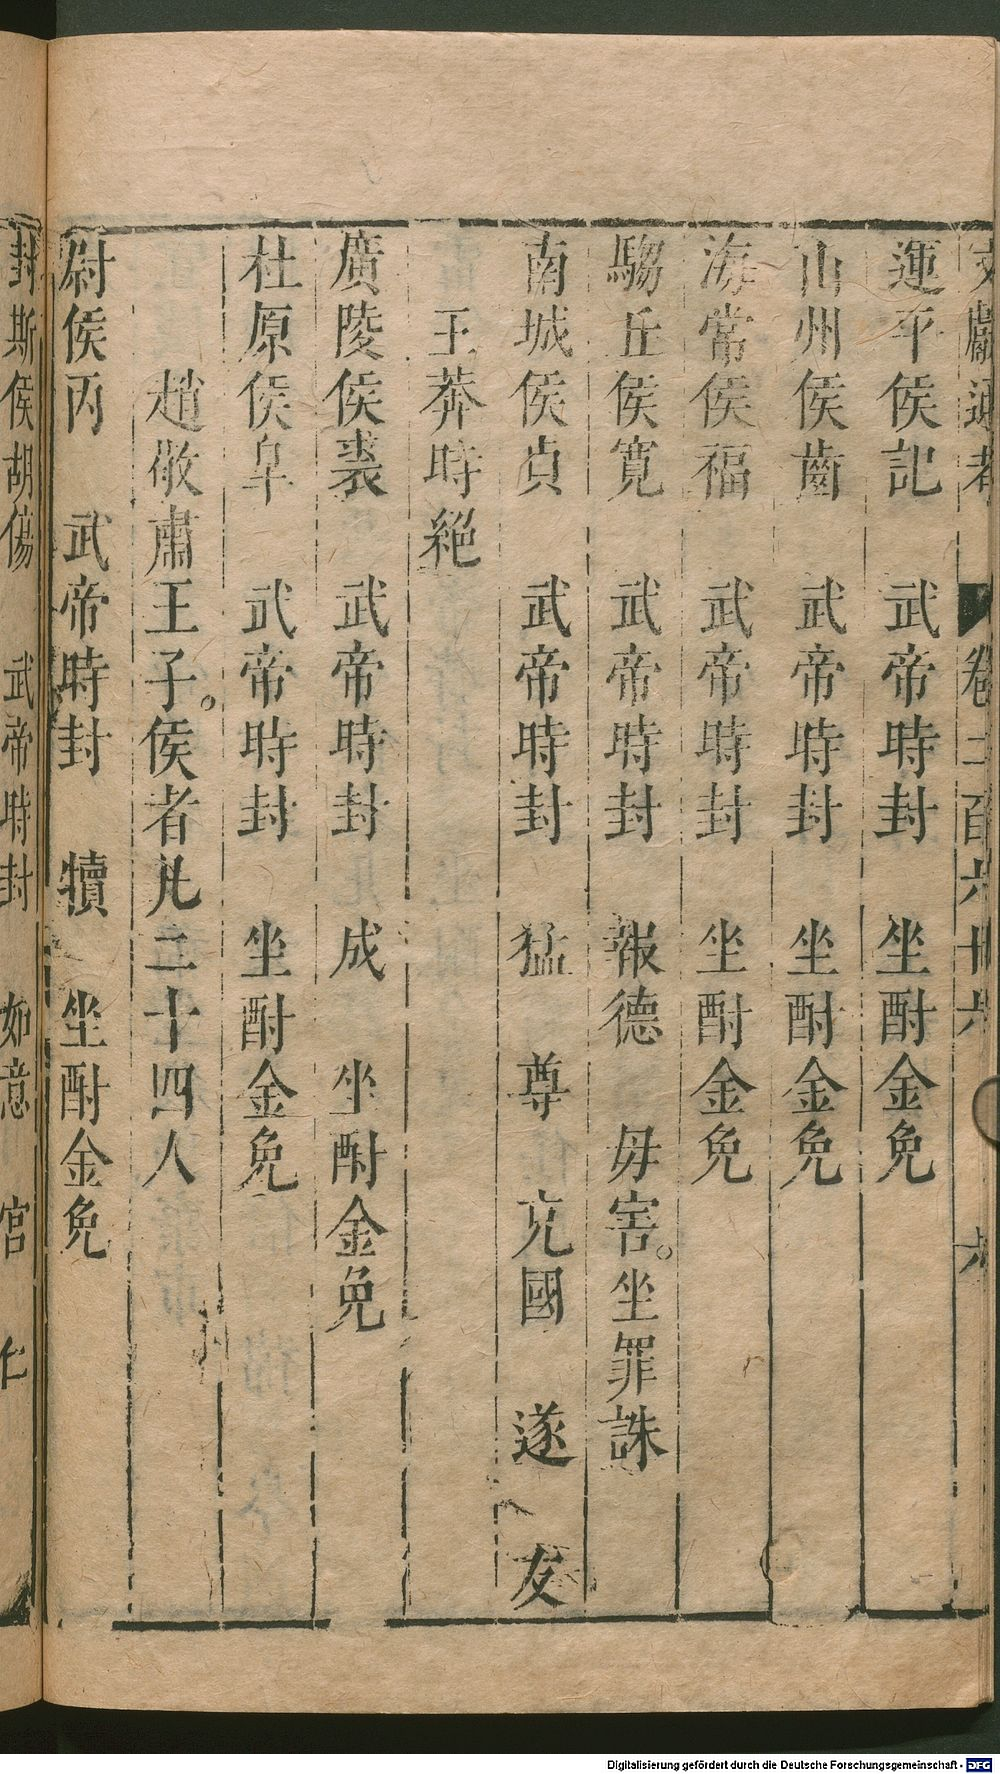 文獻通考 卷二百六十六 六
運平侯記 武帝時封 坐酎金免
山州侯齒 武帝時封 坐酎金免
海常侯福 武帝時封 坐酎金免
騶丘侯寬 武帝時封 報德 毋害。坐罪誅
南城侯貞 武帝時封 猛 尊 充國 遂 友
王莽時絕
廣陵侯裘 武帝時封 成 坐酎金免
杜原侯臯 武帝時封 坐酎金免
趙敬肅王子。侯者凡二十四人
尉侯丙 武帝時封 犢 坐酎金免
封斯侯胡傷 武帝時封 如意 宮 仁
Digitalisierung gefördert durch die Deutsche Forschungsgemeinschaft - DFG